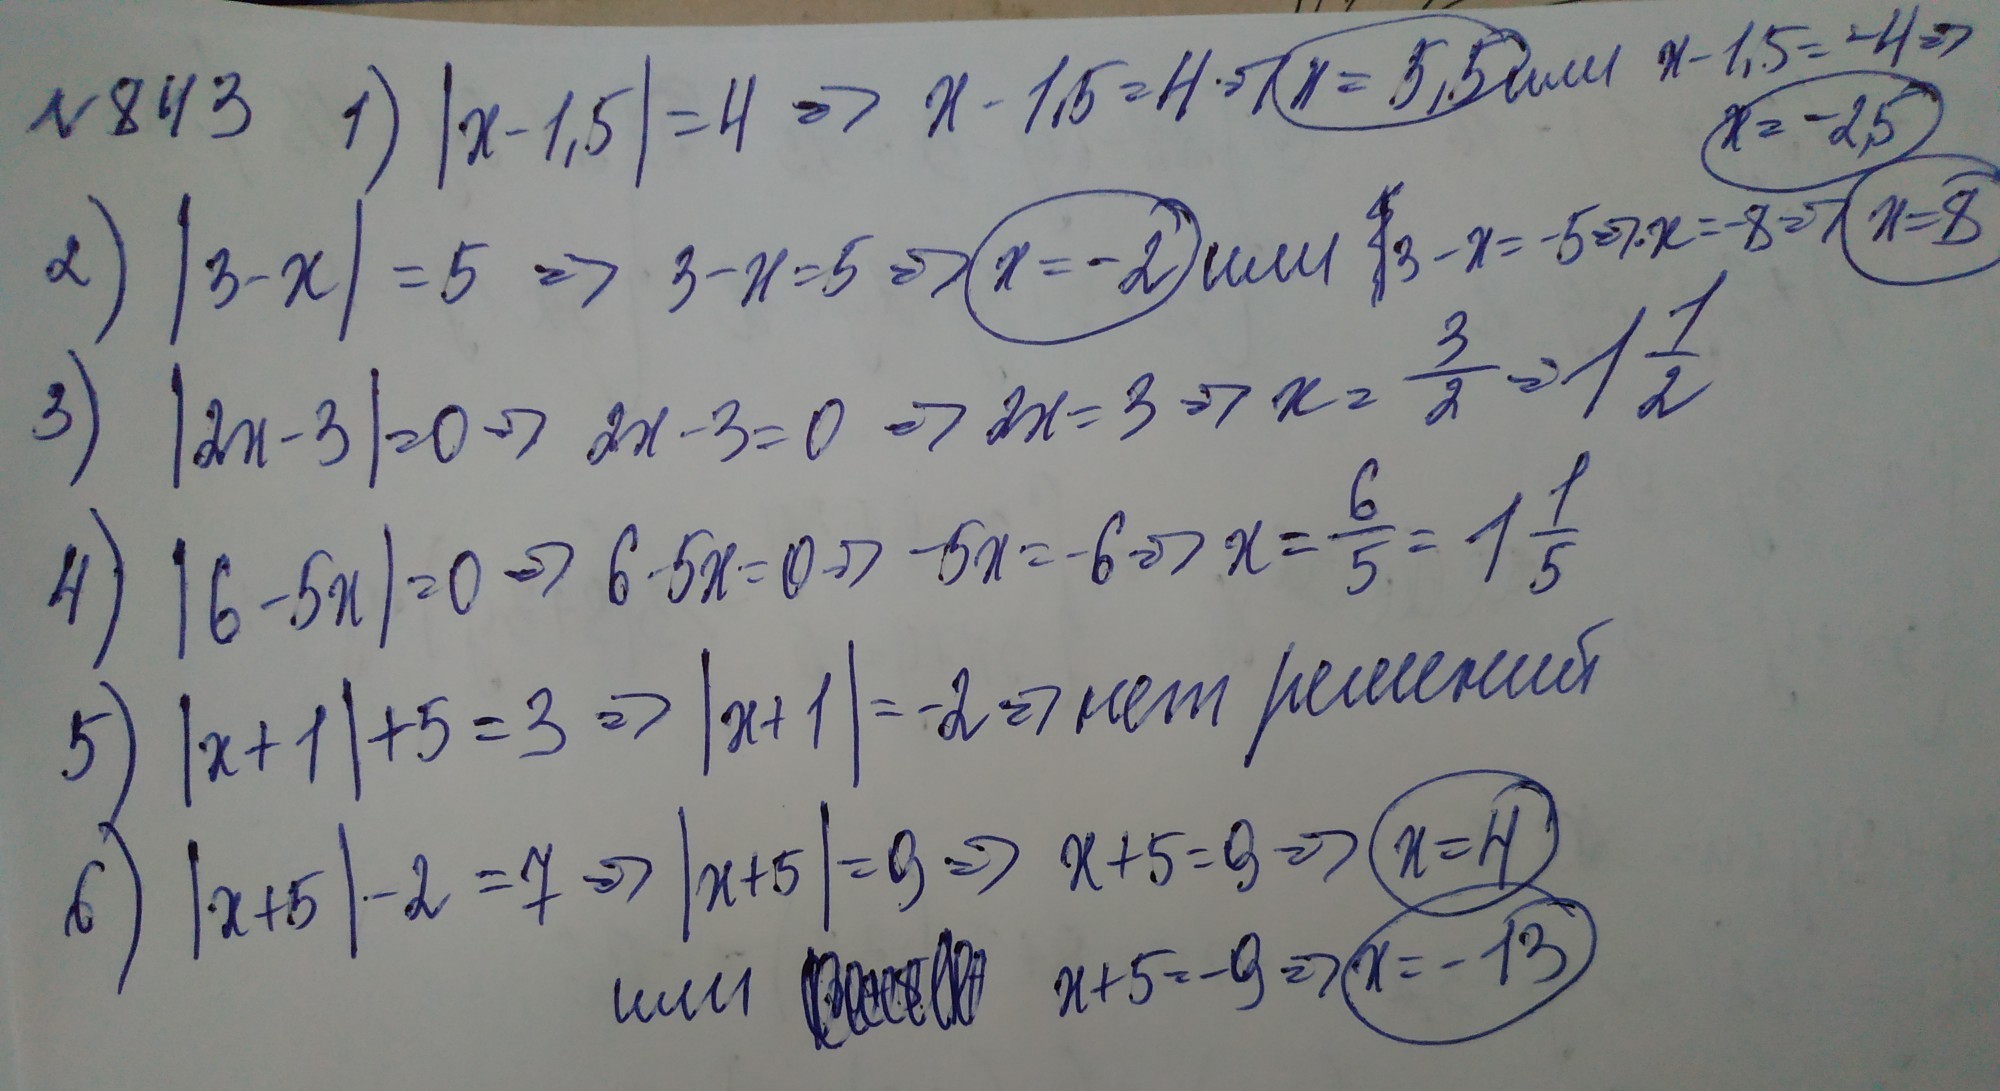 №843 1) |x-1,5|=4 => x-1,5=4 => x=5,5 или x-1,5=-4 =>
x=-2,5
2) |3-x|=5 => 3-x=5 => x=-2 или 3-x=-5 => -x=-8 => x=8
3) |2x-3|=0 => 2x-3=0 => 2x=3 => x=3/2 = 1 1/2
4) |6-5x|=0 => 6-5x=0 => -5x=-6 => x=6/5 = 1 1/5
5) |x+1|+5=3 => |x+1|=-2 => нет решений
6) |x+5|-2=7 => |x+5|=9 => x+5=9 => x=4
или x+5=-9 => x=-13